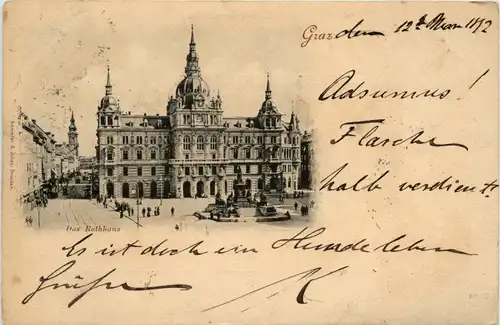 Graz, den 12t Mai 1892
Adsumus!
Flasche
halb verdient.
Das Rathhaus
Es ist doch ein Hundeleben
Grüße K